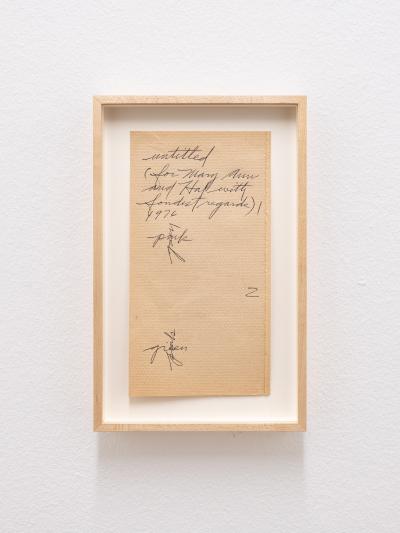 untitled
(for Mary Ann
and Hal with
fondest regards) 1
1976
pink
N
green